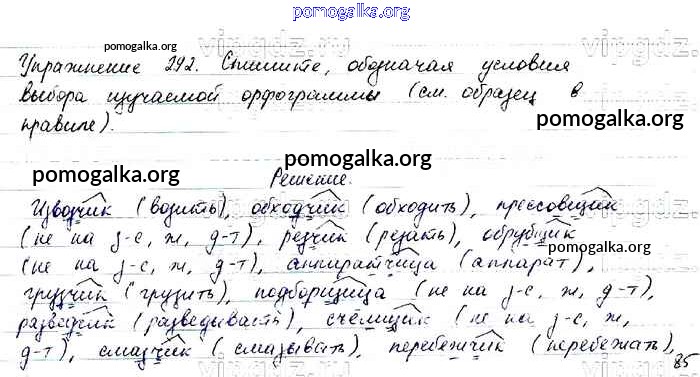 pomogalka.org
pomogalka.org
Упражнение 292. Спишите, обозначая условия
выбора изучаемой орфограммы (см. образец в
правиле).
pomogalka.org
pomogalka.org
pomogalka.org
Решение.
Извозчик (возить), обходчик (обходить), прессовщик
(не на з-с, ж, д-т), резчик (резать), обрубщик
pomogalka.org
(не на з-с, ж, д-т), аппаратчица (аппарат),
грузчик (грузить), подборщица (не на з-с, ж, д-т),
разведчик (разведывать), счёмщик (не на з-с, ж,
д-т), смазчик (смазывать), перебежчик (перебежать),
85